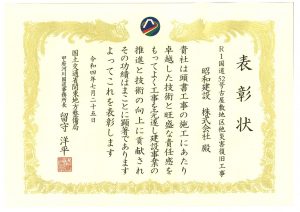 表彰状
R1国道52号古屋敷地区他災害復旧工事
昭和建設 株式会社 殿
貴社は頭書工事の施工にあたり
卓越した技術と旺盛な責任感を
もってよく工事を完遂し建設事業の
推進と技術の向上に貢献され
その功績はまことに顕著であります
よってこれを表彰します
令和四年七月二十五日
国土交通省関東地方整備局
甲府河川国道事務所長
留守 洋平